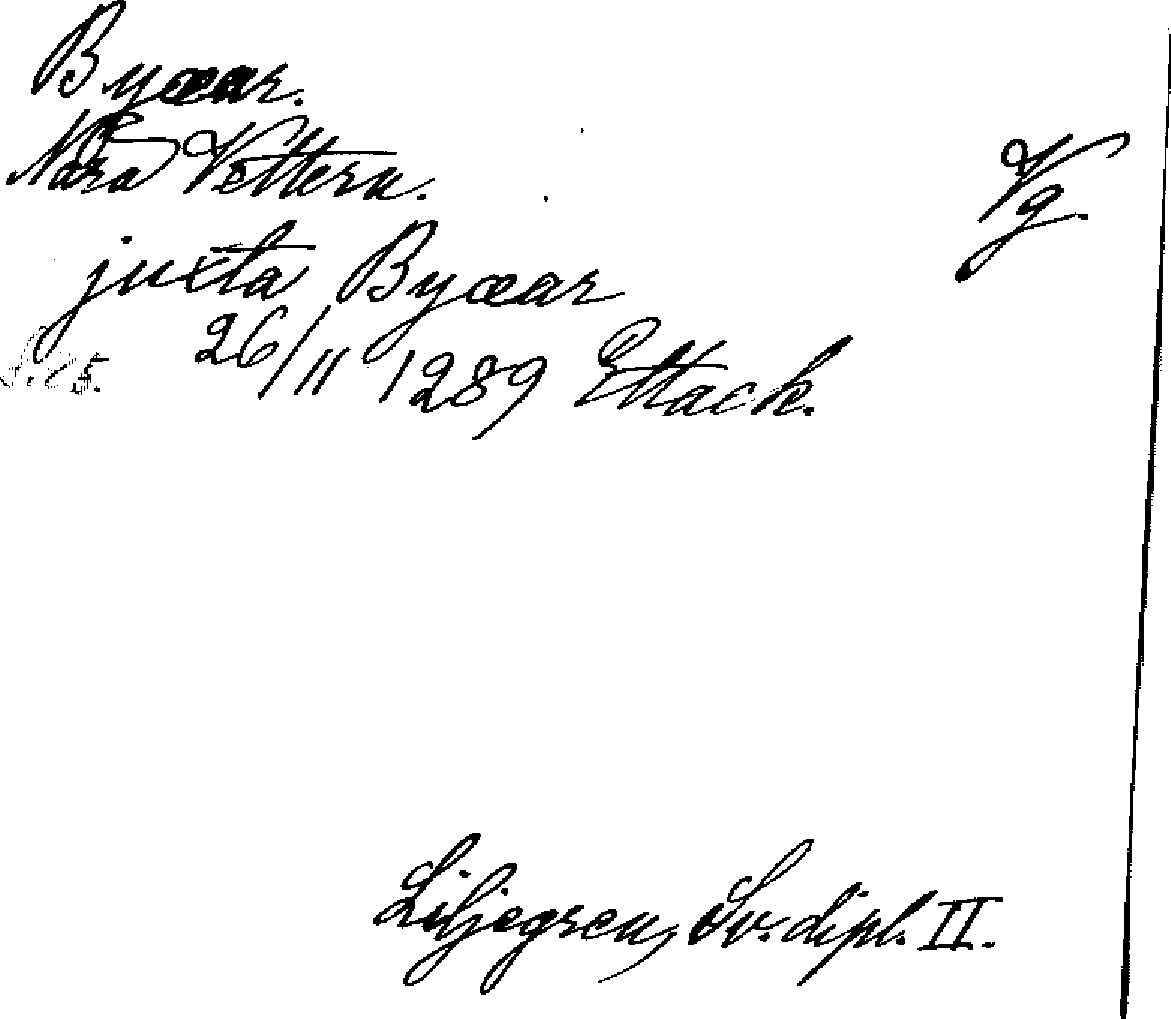 Byxar.
Nära Vettern.
Vg.
juxta Byxar
26/11 1289 Ettack.
Liljegren, Sv. dipl. II.